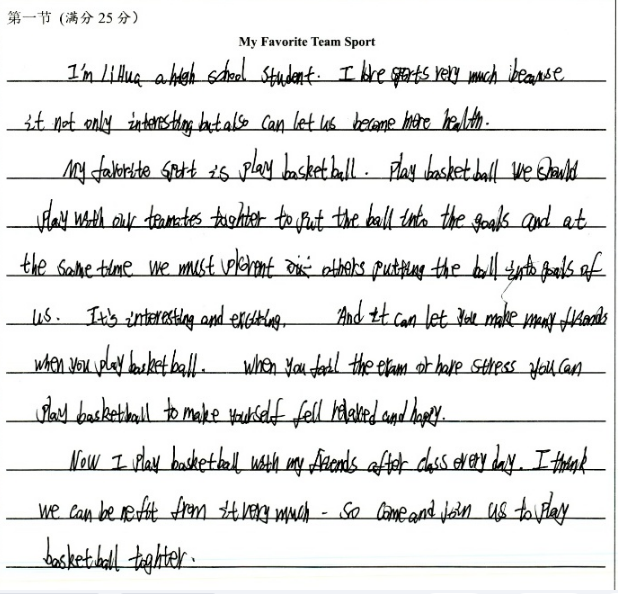 第一节 (满分 25 分)
My Favorite Team Sport
I'm LiHua a high school student. I like sports very much because
it not only interesting but also can let us become more health.
My favorite sport is play basketball. Play basketball we should
play with our teamates toghter to put the ball into the goals and at
the same time we must prevent others putting the ball into goals of
us. It's interesting and exciting. And it can let you make many friends
when you play basketball. When you fail the exam or have stress you can
play basketball to make yourself fell relaxed and happy.
Now I play basketball with my friends after class every day. I think
we can be nefit from it very much - so come and join us to play
basketball toghter.